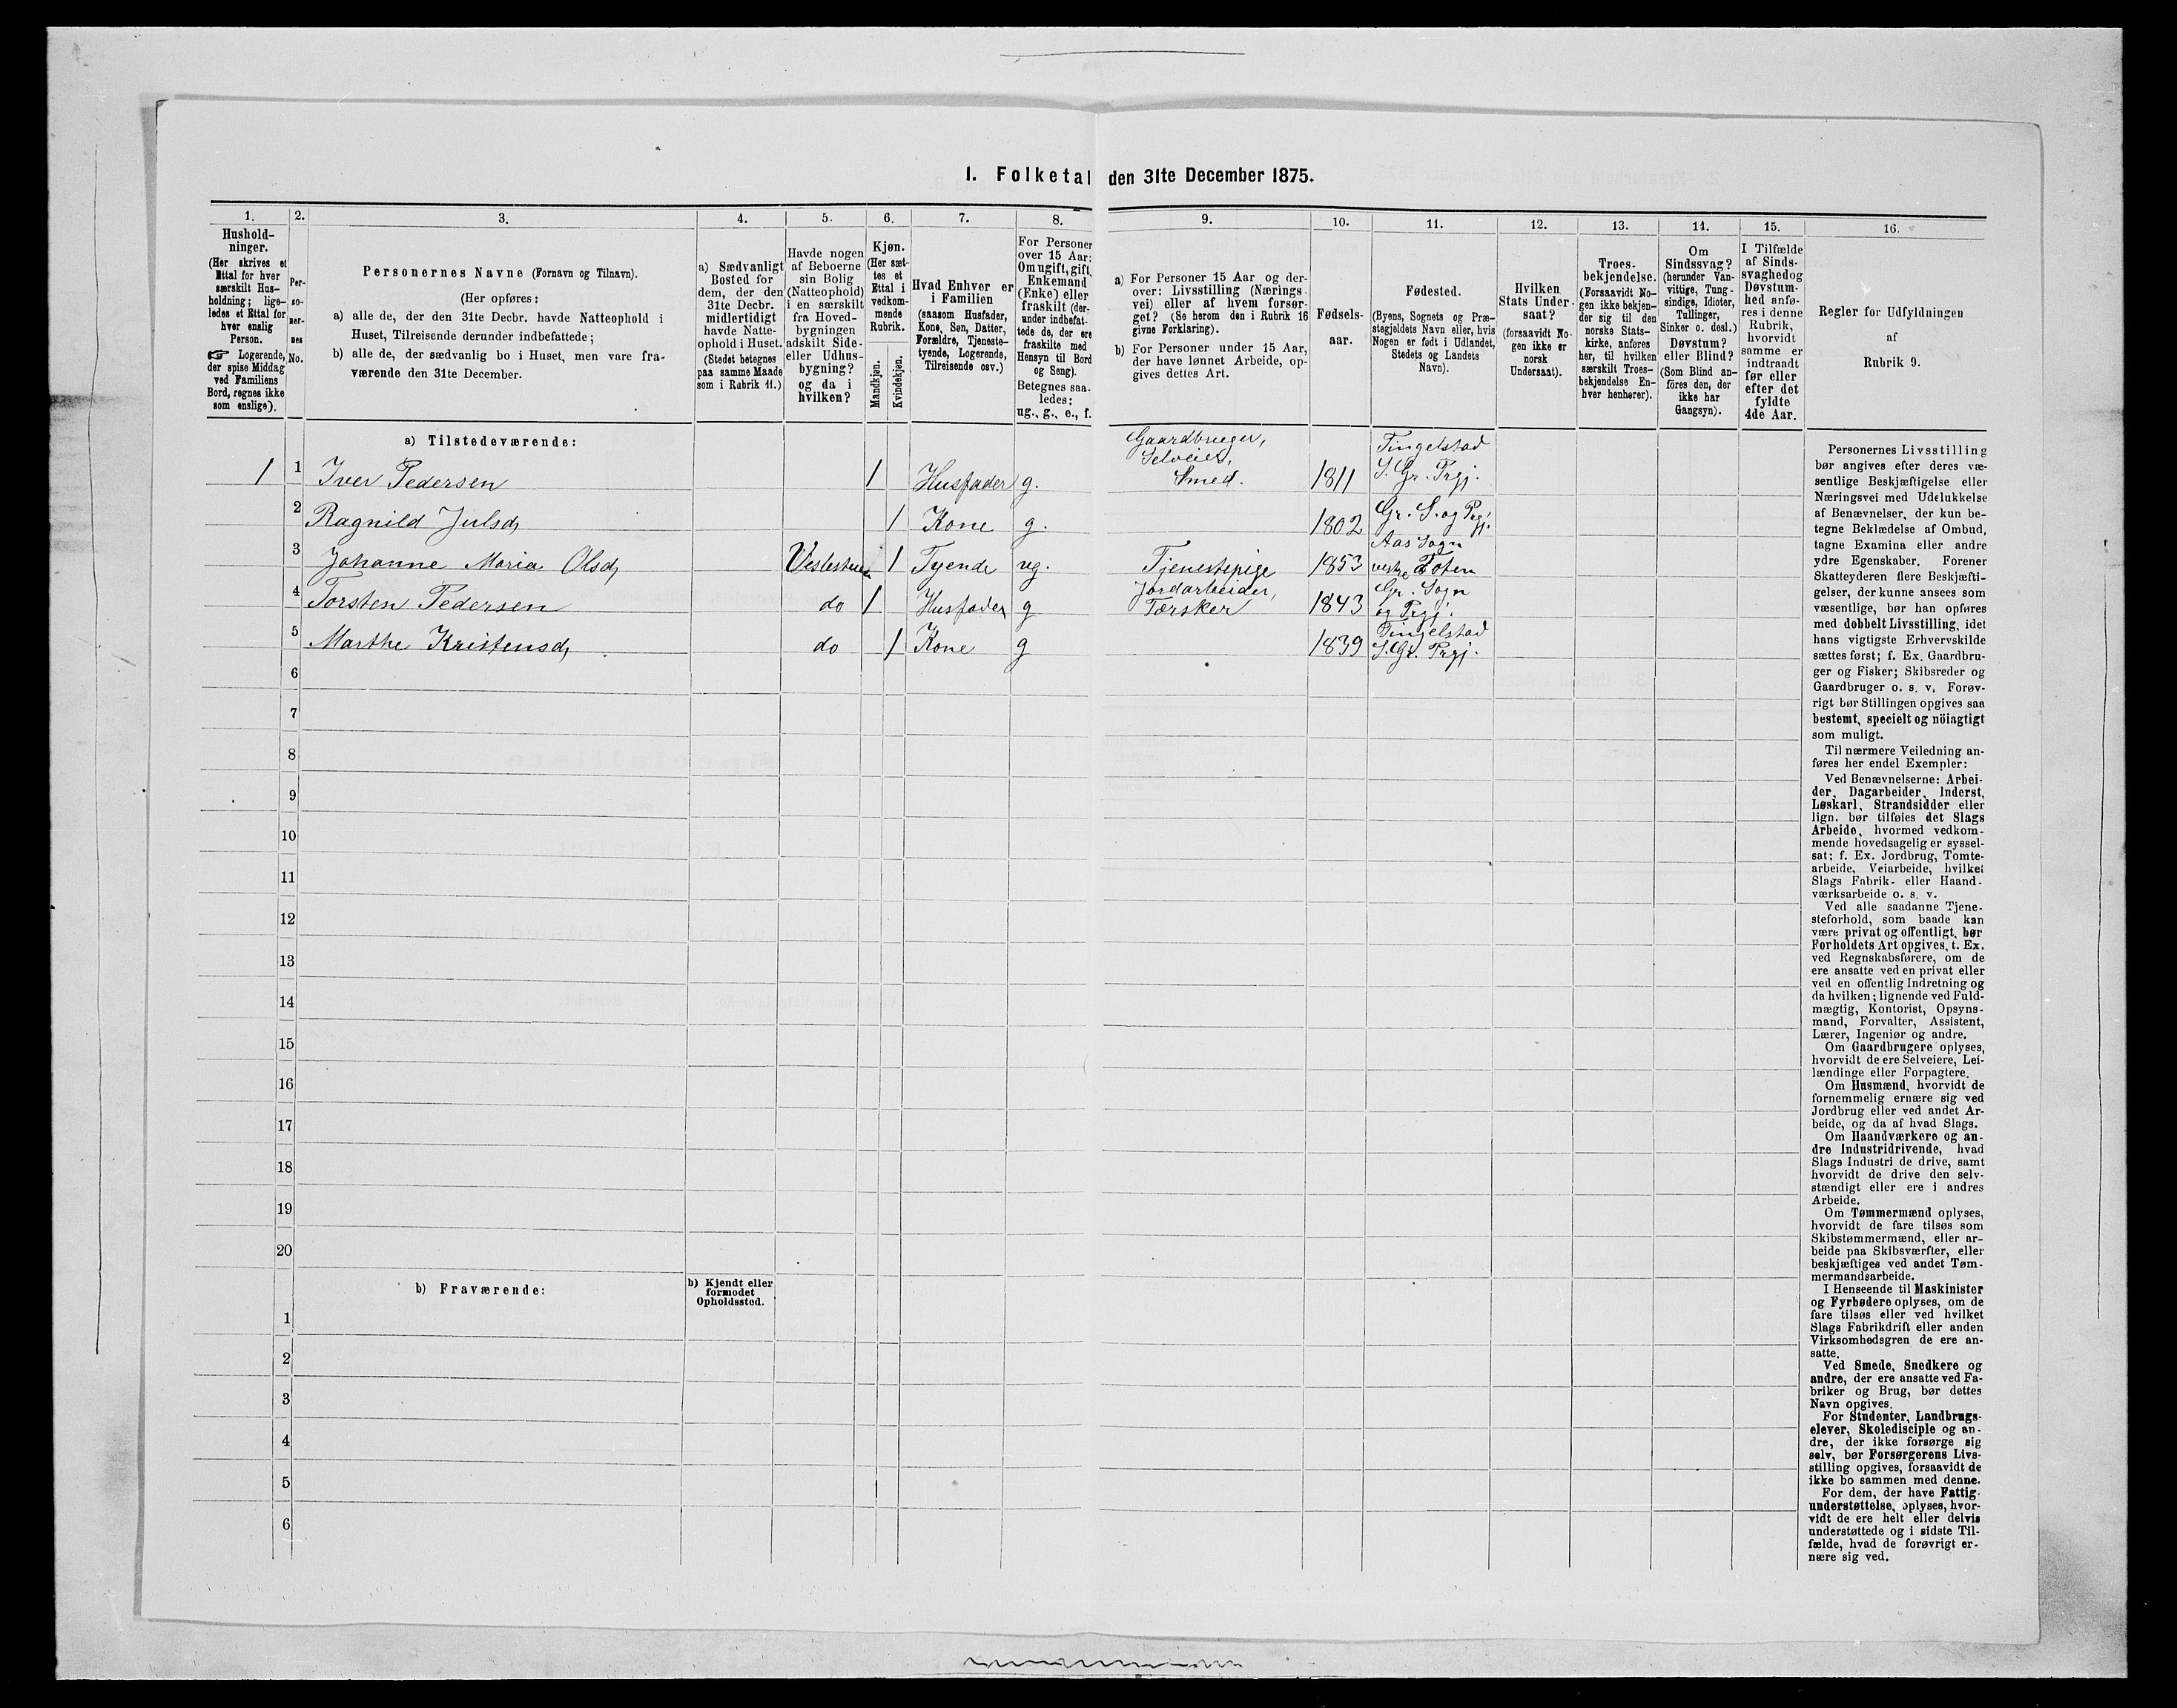 I. Folketal den 31te December 1875.
1.
Hushold-
ninger.
(Her skrives et
Ettal for hver
særskilt Hus-
holdning; lige-
ledes et Ettal for
hver enslig
Person.
☞ Logerende,
der spise Middag
ved Familiens
Bord, regnes ikke
som enslige).
2.
Per-
so-
ner-
nes
No.
3.
Personernes Navne (Fornavn og Tilnavn).
(Her opføres:
a) alle de, der den 31te Decbr. havde Natteophold i
Huset, Tilreisende derunder indbefattede;
b) alle de, der sædvanlig bo i Huset, men vare fra-
værende den 31te December.
4.
a) Sædvanligt
Bosted for
dem, der den
31te Decbr.
midlertidigt
havde Natte-
ophold i Huset.
(Stedet betegnes
paa samme Maade
som i Rubrik 11.)
5.
Havde nogen
af Beboerne
sin Bolig
(Natteophold)
i en særskilt
fra Hoved-
bygningen
adskilt Side-
eller Udhus-
bygning?
og da i
hvilken?
6.
Kjøn.
(Her sæt-
tes et
Ettal i
vedkom-
mende
Rubrik.
Mandkjøn.
Kvindekjøn.
7.
Hvad Enhver er
i Familien
(saasom Husfader,
Kone, Søn, Datter,
Forældre, Tjeneste-
tyende, Logerende,
Tilreisende osv.)
8.
For Personer
over 15 Aar:
Om ugift, gift,
Enkemand
(Enke) eller
fraskilt (der-
under indbefat-
tede de, der ere
fraskilte med
Hensyn til Bord
og Seng).
Betegnes saa-
ledes:
ug., g., e., f.
9.
a) For Personer 15 Aar og der-
over: Livsstilling (Nærings-
vei) eller af hvem forsør-
get? (Se herom den i Rubrik 16
givne Forklaring).
b) For Personer under 15 Aar,
der have lønnet Arbeide, op-
gives dettes Art.
10.
Fødsels-
aar.
11.
Fødested.
(Byens, Sognets og Præ-
stegjeldets Navn eller, hvis
Nogen er født i Udlandet,
Stedets og Landets
Navn).
12.
Hvilken
Stats Under-
saat?
(forsaavidt No-
gen ikke er
norsk
Undersaat).
13.
Troes-
bekjendelse.
(Forsaavidt No-
gen ikke bekjen-
der sig til den
norske Stats-
kirke, anføres
her, til hvilken
særskilt Troes-
bekjendelse En-
hver henhører).
14.
Om
Sindssvag?
(herunder Van-
vittige, Tung-
sindige, Idioter,
Tullinger,
Sinker o. desl.)
Døvstum?
eller Blind?
(Som Blind an-
föres den, der
ikke har
Gangsyn).
15.
I Tilfælde
af Sinds-
svaghed og
Døvstum-
hed anfø-
res i denne
Rubrik,
hvorvidt
samme er
indtraadt
før eller
efter det
fyldte
4de Aar.
16.
Regler for Udfyldningen
af
Rubrik 9.
a) Tilstedeværende:
Gaardbruger,
Selveier,
Tingelstad
1 1 Iver Pedersen 1 Husfader g. Smed. 1811 S. Gr. Prgj.
2 Ragnild Julsd, 1 Kone g. 1802 Gr. S. og Prgj.
Aas Sogn
3 Johanne Maria Olsd, Vestestuen 1 Tyende ug. Tjenestepige 1853 vestre Toten
Jordarbeider, Gr. Sogn
4 Torsten Pedersen do 1 Husfader g Tærsker 1843 og Prgj.
Tingelstad
5 Marthe Kristensd, do 1 Kone g 1839 S. Gr. Prgj.
6
7
8
9
10
11
12
13
14
15
16
17
18
19
20
b) Fraværende:
b) Kjendt eller
formodet
Opholdssted.
1
2
3
4
5
6
Personernes Livsstilling
bør angives efter deres væ-
sentlige Beskjæftigelse eller
Næringsvei med Udelukkelse
af Benævnelser, der kun be-
tegne Beklædelse af Ombud,
tagne Examina eller andre
ydre Egenskaber. Forener
Skatteyderen flere Beskjæfti-
gelser, der kunne ansees som
væsentlige, bør han opføres
med dobbelt Livsstilling, idet
hans vigtigste Erhvervskilde
sættes først; f. Ex. Gaardbru-
ger og Fisker; Skibsreder og
Gaardbruger o. s. v. Forøv-
rigt bør Stillingen opgives saa
bestemt, specielt og nöiagtigt
som muligt.
Til nærmere Veiledning an-
føres her endel Exempler:
Ved Benævnelserne: Arbei-
der, Dagarbeider, Inderst,
Løskarl, Strandsidder eller
lign. bør tilføies det Slags
Arbeide, hvormed vedkom-
mende hovedsagelig er syssel-
sat; f. Ex. Jordbrug, Tomte-
arbeide, Veiarbeide, hvilket
Slags Fabrik- eller Haand-
værksarbeide o. s. v.
Ved alle saadanne Tjene-
steforhold, som baade kan
være privat og offentligt, bør
Forholdets Art opgives, t. Ex.
ved Regnskabsførere, om de
ere ansatte ved en privat eller
ved en offentlig Indretning og
da hvilken; lignende ved Fuld-
mægtig, Kontorist, Opsyns-
mand, Forvalter, Assistent,
Lærer, Ingeniør og andre.
Om Gaardbrugere oplyses,
hvorvidt de ere Selveiere, Lei-
lændinge eller Forpagtere.
Om Husmænd, hvorvidt de
fornemmelig ernære sig ved
Jordbrug eller ved andet Ar-
beide, og da af hvad Slags.
Om Haandværkere og an-
dre Industridrivende, hvad
Slags Industri de drive, samt
hvorvidt de drive den selv-
stændigt eller ere i andres
Arbeide.
Om Tømmermænd oplyses,
hvorvidt de fare tilsøs som
Skibstømmermænd, eller ar-
beide paa Skibsværfter, eller
beskjæftiges ved andet Tøm-
mermandsarbeide.
I Henseende til Maskinister
og Fyrbødere oplyses, om de
fare tilsøs eller ved hvilket
Slags Fabrikdrift eller anden
Virksomhedsgren de ere an-
satte.
Ved Smede, Snedkere og
andre, der ere ansatte ved Fa-
briker og Brug, bør dettes
Navn opgives.
For Studenter, Landbrugs-
elever, Skoledisciple og an-
dre, der ikke forsørge sig
selv, bør Forsørgerens Livs-
stilling opgives, forsaavidt de
ikke bo sammen med denne.
For dem, der have Fattig-
understøttelse, oplyses, hvor-
vidt de ere helt eller delvis
understøttede og i sidste Til-
fælde, hvad de forøvrigt er-
nære sig ved.